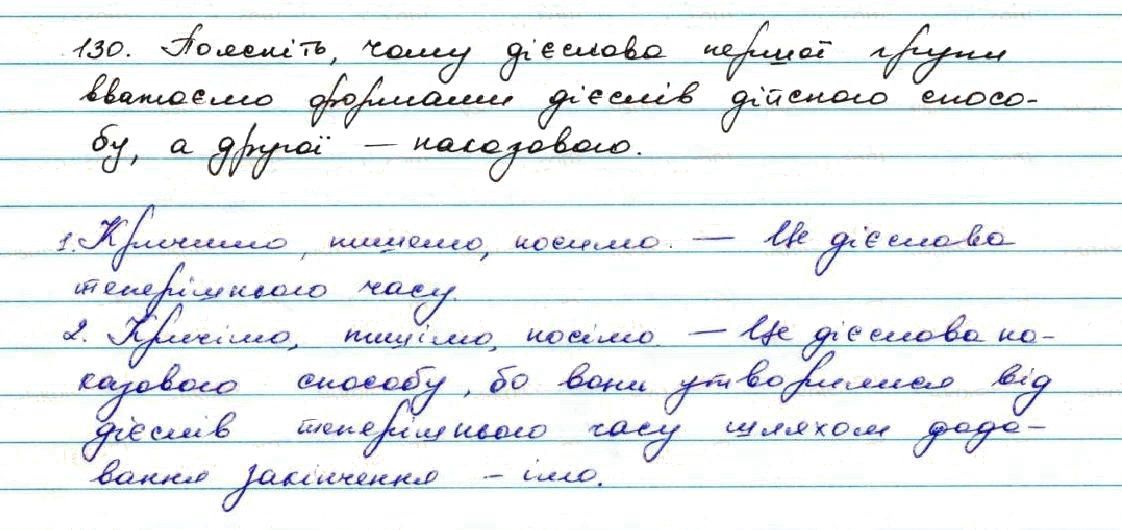 130. Поясніть, чому дієслова першої групи
вважаємо формами дієслів дійсного спосо-
бу, а другої – наказового.
1. Кричимо, пишемо, носимо. – Це дієслова
теперішнього часу.
2. Кричімо, пишімо, носімо – Це дієслова на-
казового способу, бо вони утворилися від
дієслів теперішнього часу шляхом дода-
вання закінчення – імо.